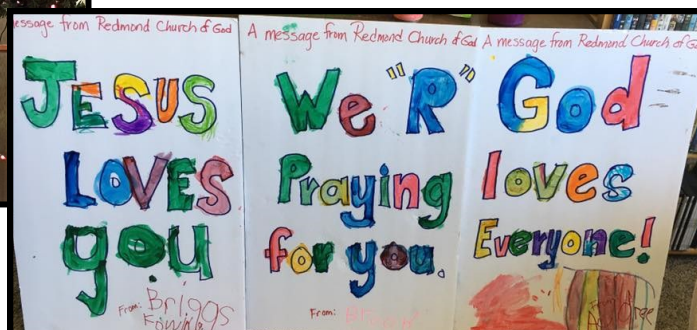 essage from Redmond Church of God
JESUS
LOVES
you
From: Briggs
A message from Redmond Church of God
We "R"
Praying
for you.
From:
A message from Redmond Church of G
God
loves
Everyone!